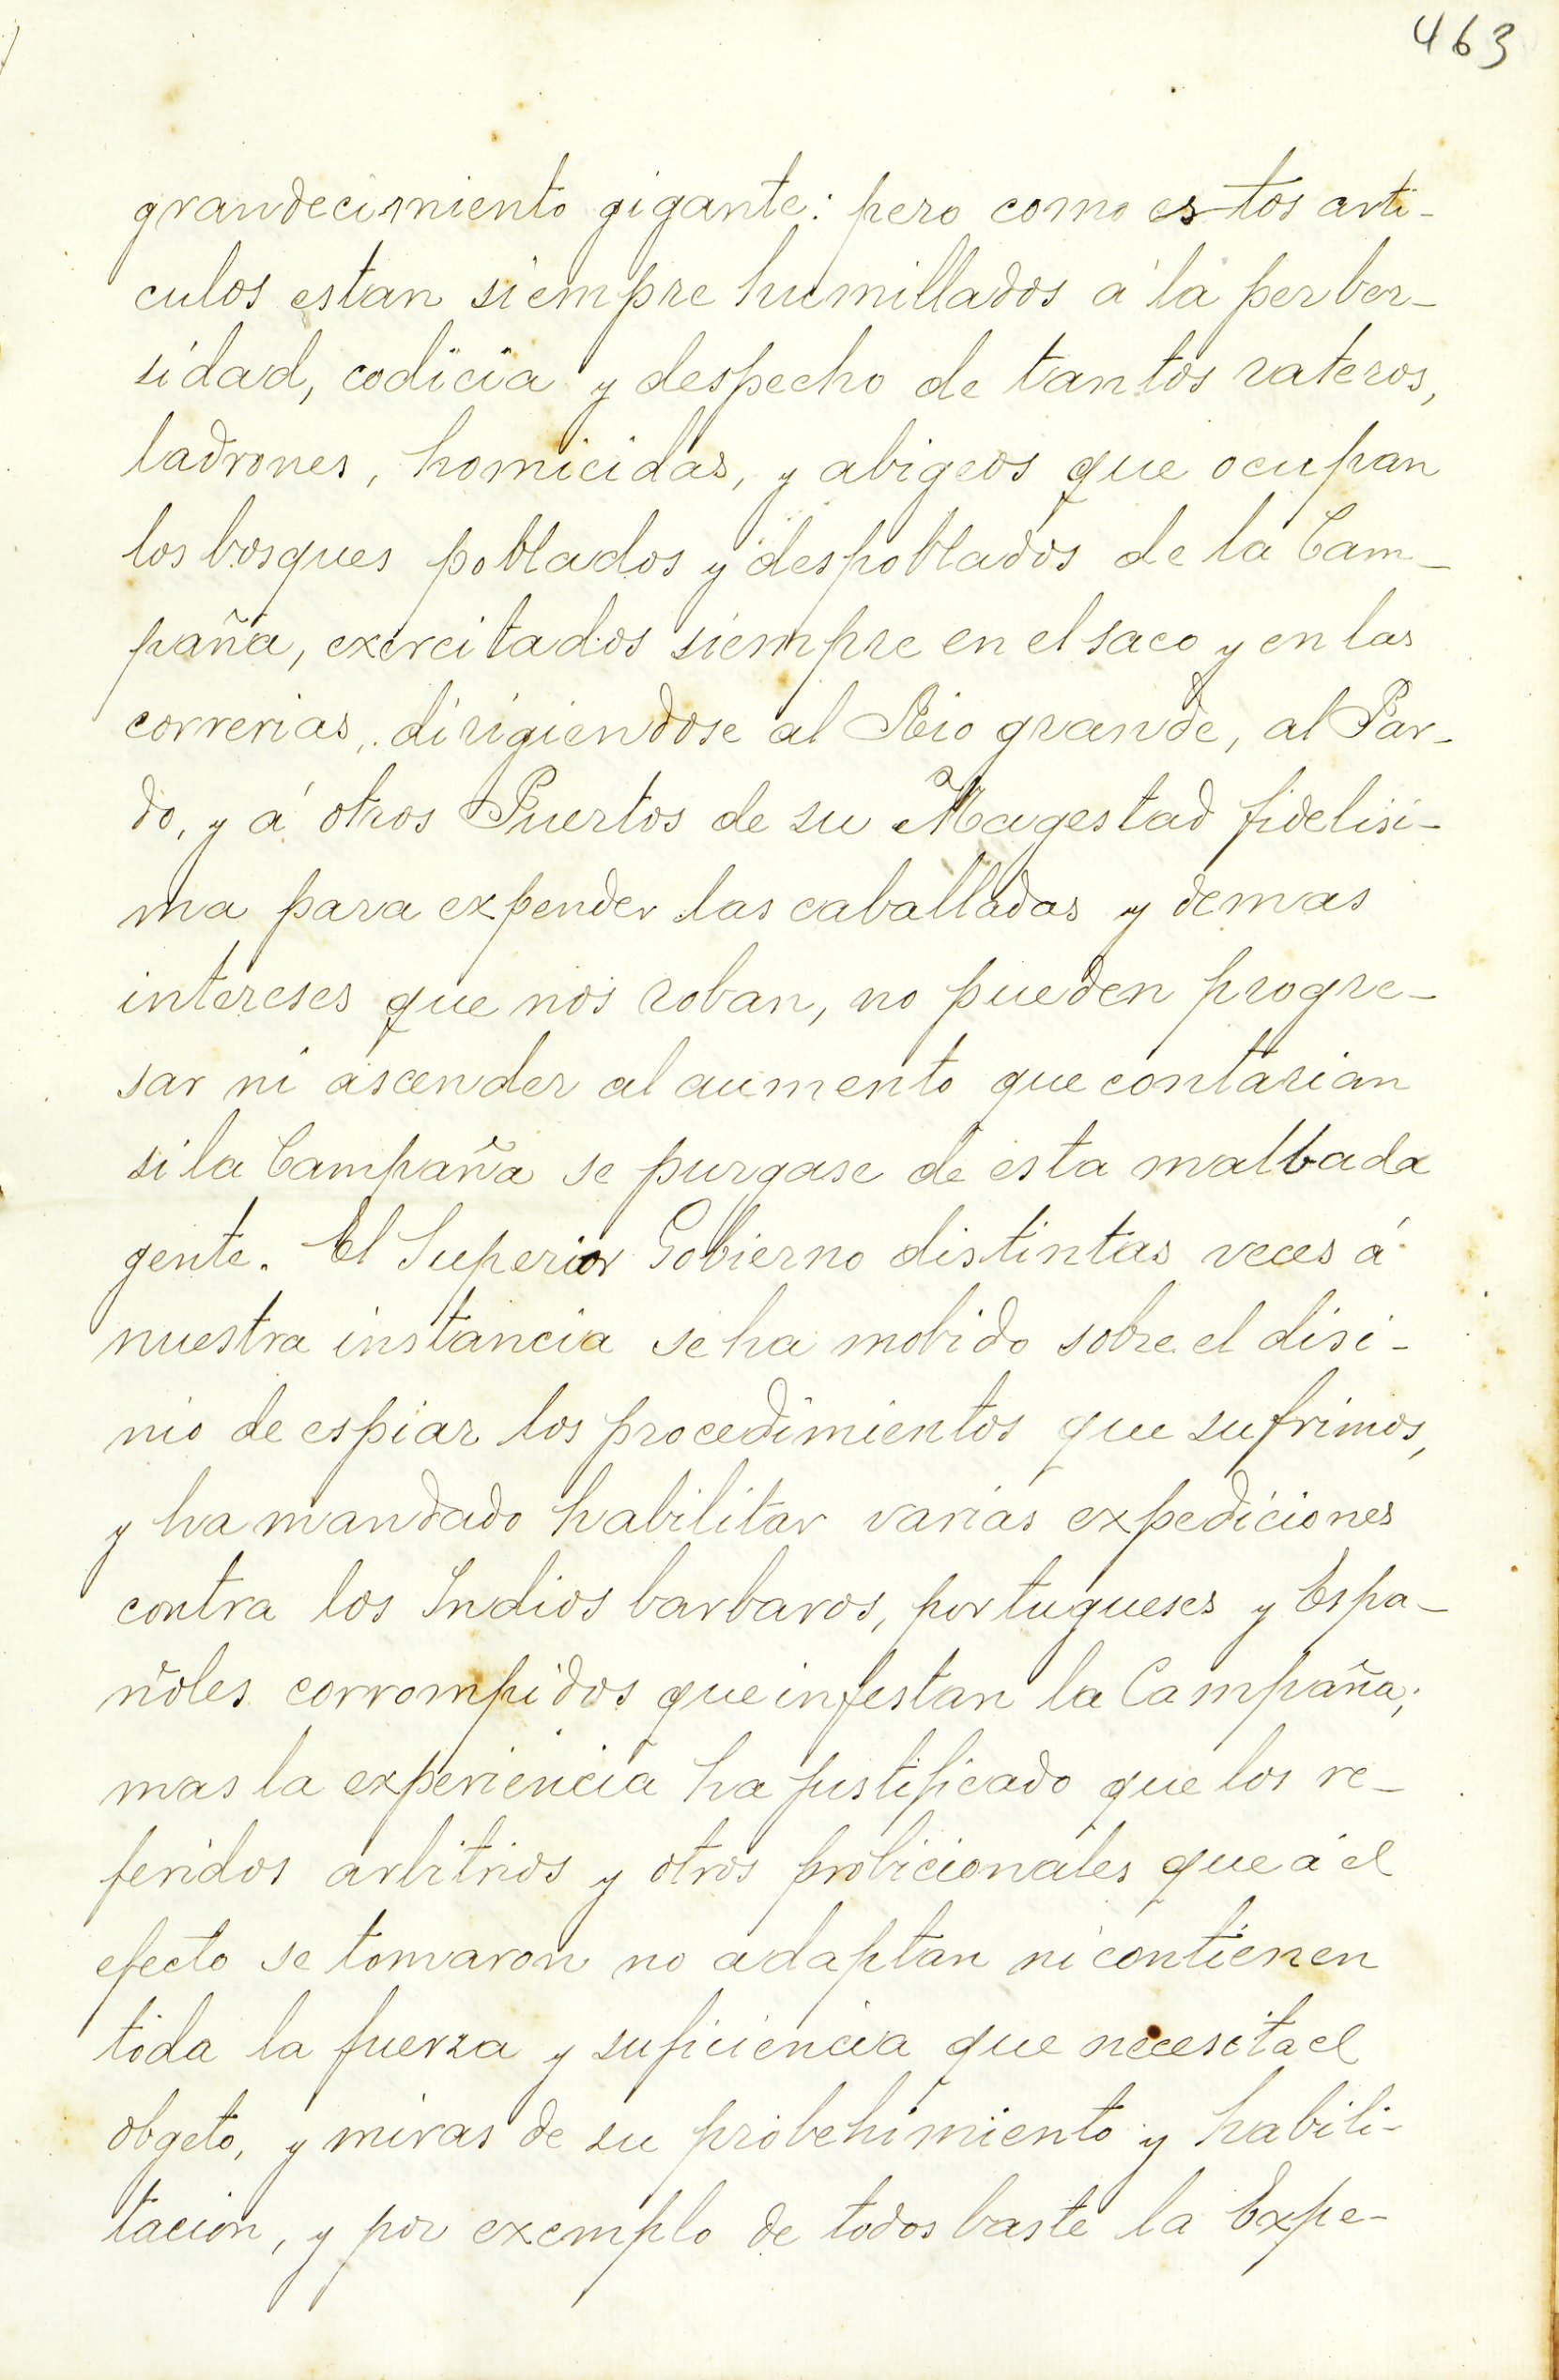 463
grandecimiento gigante: pero como estos arti-
culos estan siempre humillados á la perber-
sidad, codicia y despecho de tantos rateros,
ladrones, homicidas, y abigeos que ocupan
los bosques poblados y despoblados de la Cam-
paña, exercitados siempre en el saco y en las
correrias, dirigiendose al Rio grande, al Par-
do, y á otros Puertos de su Magestad fidelisi-
ma para expender las caballadas y demas
intereses que nos roban, no pueden progre-
sar ni ascender al aumento que contarian
si la Campaña se purgase de esta malbada
gente. El Superior Gobierno distintas veces á
nuestra instancia se ha mobido sobre el disi-
nio de espiar los procedimientos que sufrimos,
y ha mandado habilitar varias expediciones
contra los Indios barbaros, portugueses y Espa-
ñoles corrompidos que infestan la Campaña;
mas la experiencia ha justificado que los re-
feridos arbitrios y otros probicionales que á el
efecto se tomaron no adaptan ni contienen
toda la fuerza y suficiencia que necesita el
obgeto, y miras de su probehimiento y habili-
tacion, y por exemplo de todos baste la Expe-